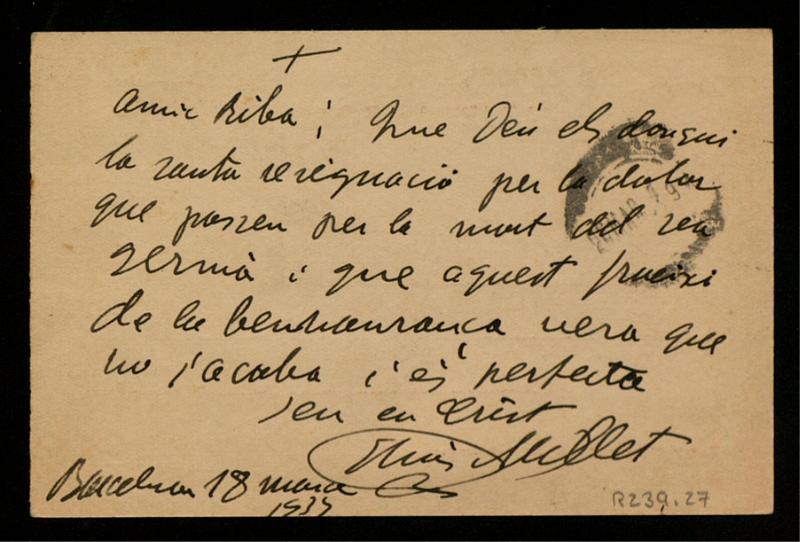 +
Amic Riba; Que Déu els dongui
la santa resignació per la dolor
que passen per la mort del seu
germà i que aquest frueixi
de la benhauransa vera que
no s'acaba i és perfecta
Seu en Crist
Lluís Millet
Barcelona 18 mars
R239.27